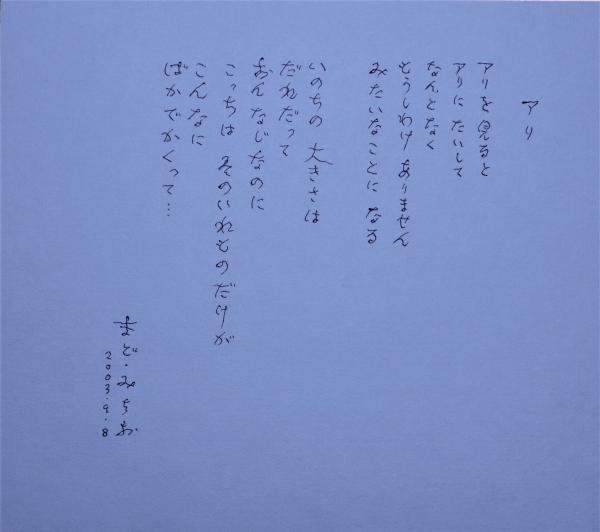 アリ
アリを見ると
アリに たいして
なんとなく
もうしわけ ありません
みたいなことに なる
いのちの 大きさは
だれだって
おんなじなのに
こっちは そのいれものだけが
こんなに
ばかでかくって…
まど・みちお
2003.9.8